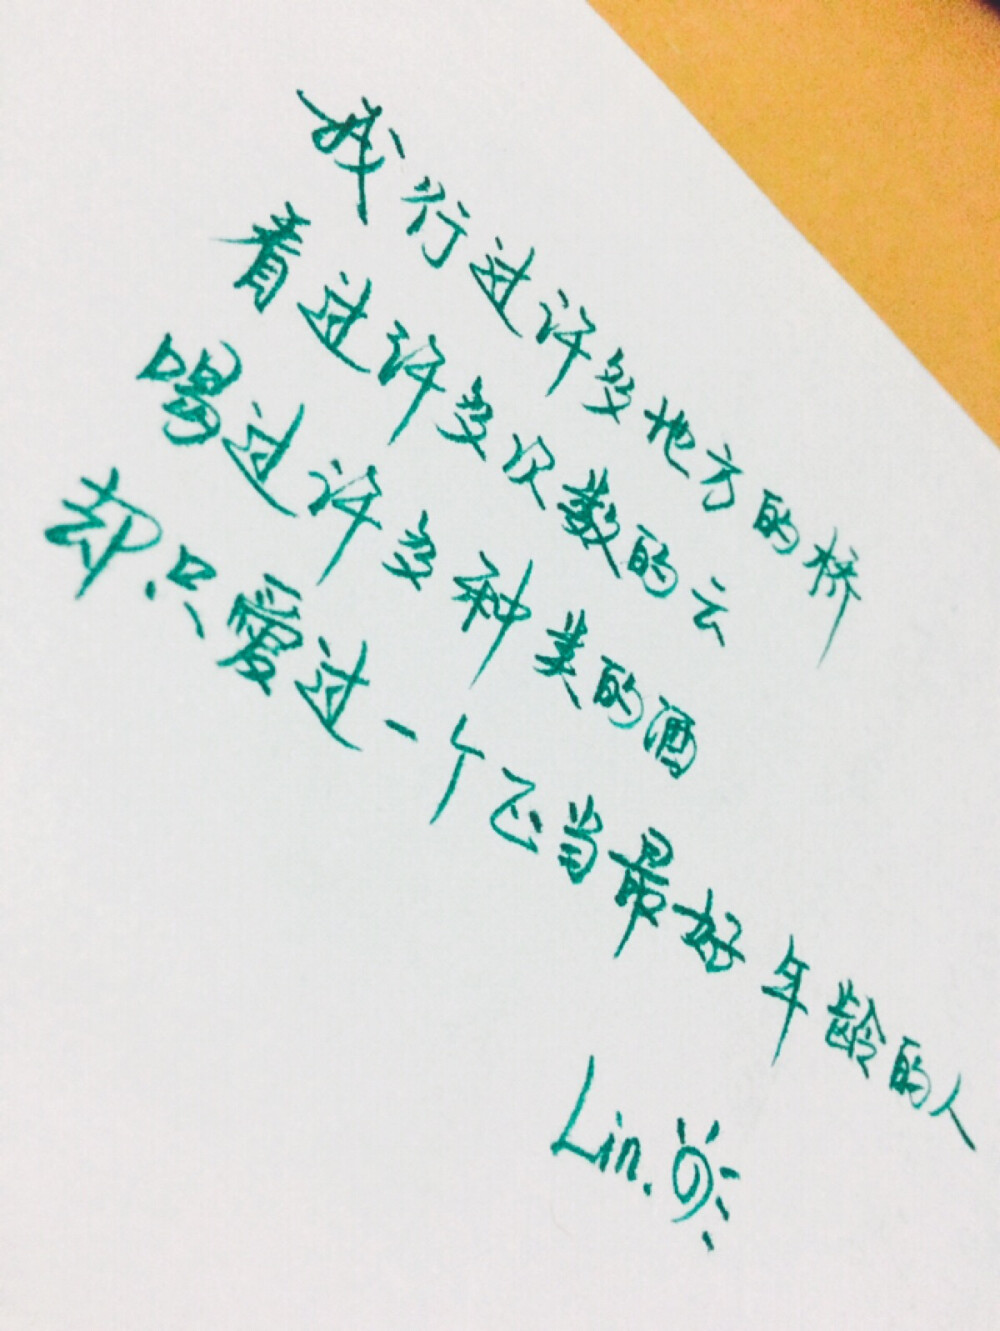 我行过许多地方的桥
看过许多次数的云
喝过许多种类的酒
却只爱过一个正当最好年龄的人
Lin.